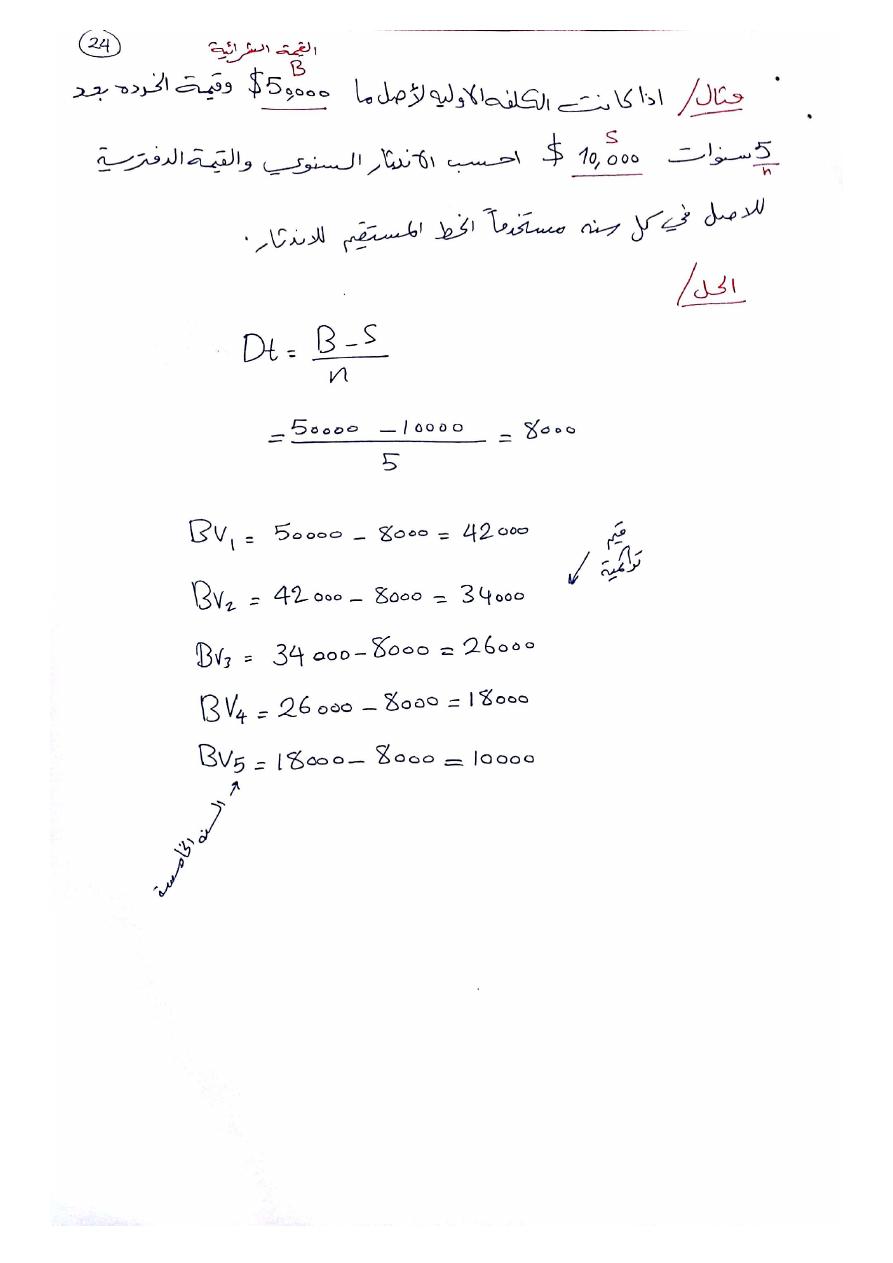 24
القيمة الشرائية
B
مثال/ اذا كانت الكلفه الاوليه لأصل ما 50,000$ وقيمة الخرده بعد
S
5 سنوات 10,000 $ احسب الاندثار السنوي والقيمة الدفترية
n
للاصل في كل سنه مستخدماً الخط المستقيم للاندثار.
الحل/
Dt = B - S
n
= 50000 - 10000 = 8000
5
BV1 = 50000 - 8000 = 42000
قيم
تراكمية
BV2 = 42000 - 8000 = 34000
BV3 = 34000 - 8000 = 26000
BV4 = 26000 - 8000 = 18000
BV5 = 18000 - 8000 = 10000
السنه الخامسة